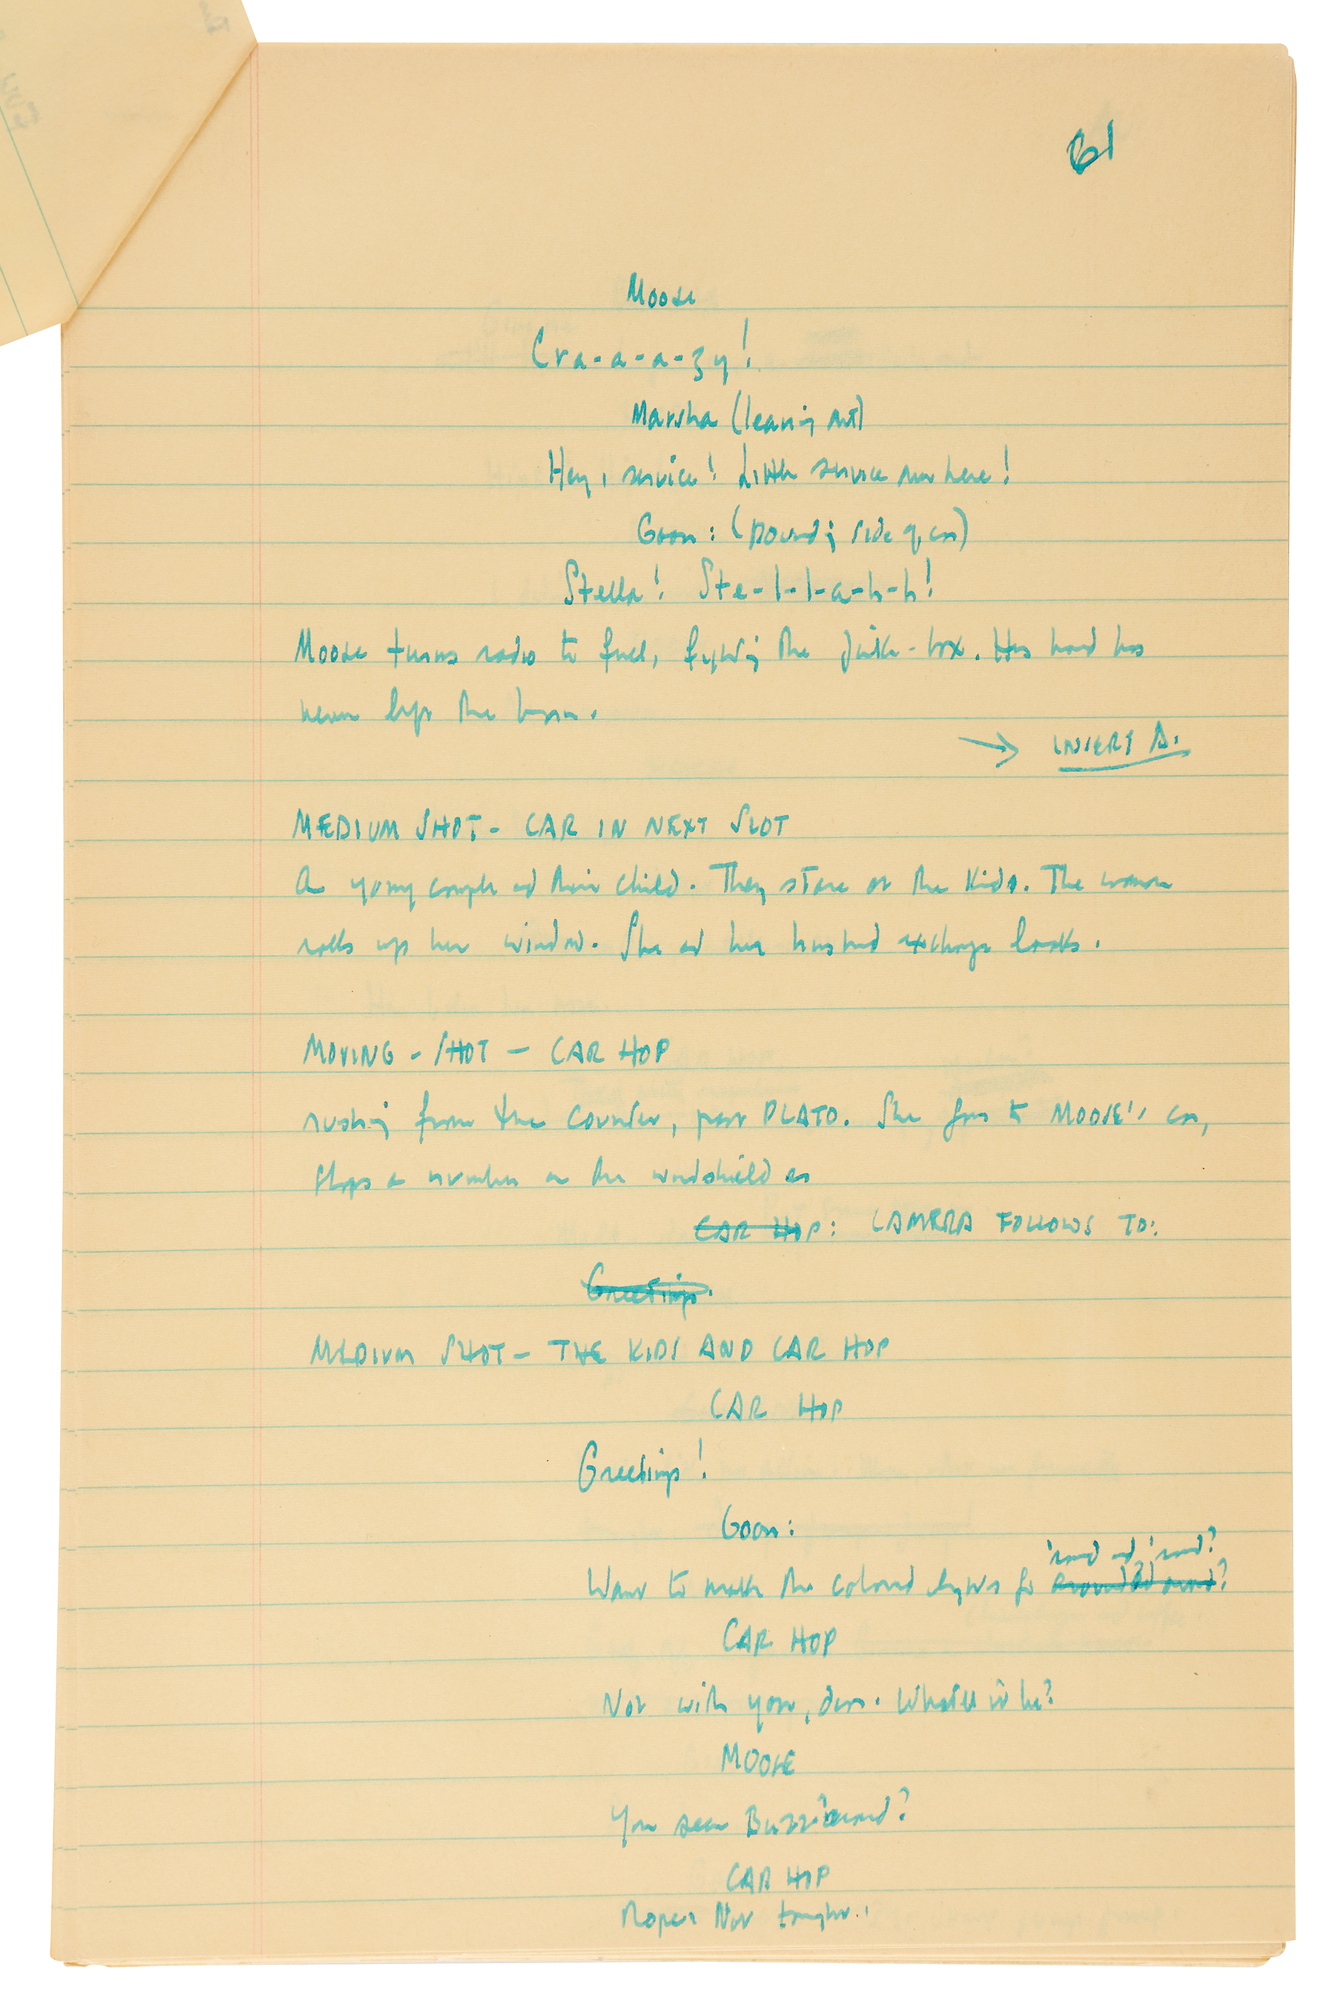 61
Moose
Cra-a-a-zy!
Marsha (leaning out)
Hey, service! Little service over here!
Goon: (pounding side of car)
Stella! Ste-l-l-a-h-h!
Moose turns radio to full, fighting the juke-box. His hand has
never left the horn.
→ INSERT A.
MEDIUM SHOT - CAR IN NEXT SLOT
A young couple and their child. They stare at the Kids. The woman
rolls up her window. She and her husband exchange looks.
MOVING - SHOT - CAR HOP
rushing from the counter, past PLATO. She goes to MOOSE's car,
slaps a number on the windshield as
CAR HOP: CAMERA FOLLOWS TO:
Greetings.
MEDIUM SHOT - THE KIDS AND CAR HOP
CAR HOP
Greetings!
Goon:
'round and 'round?
Want to make the colored lights go around and around?
CAR HOP
Not with you, dear. What'll it be?
MOOSE
You seen Buzz around?
CAR HOP
Nope. Not tonight.